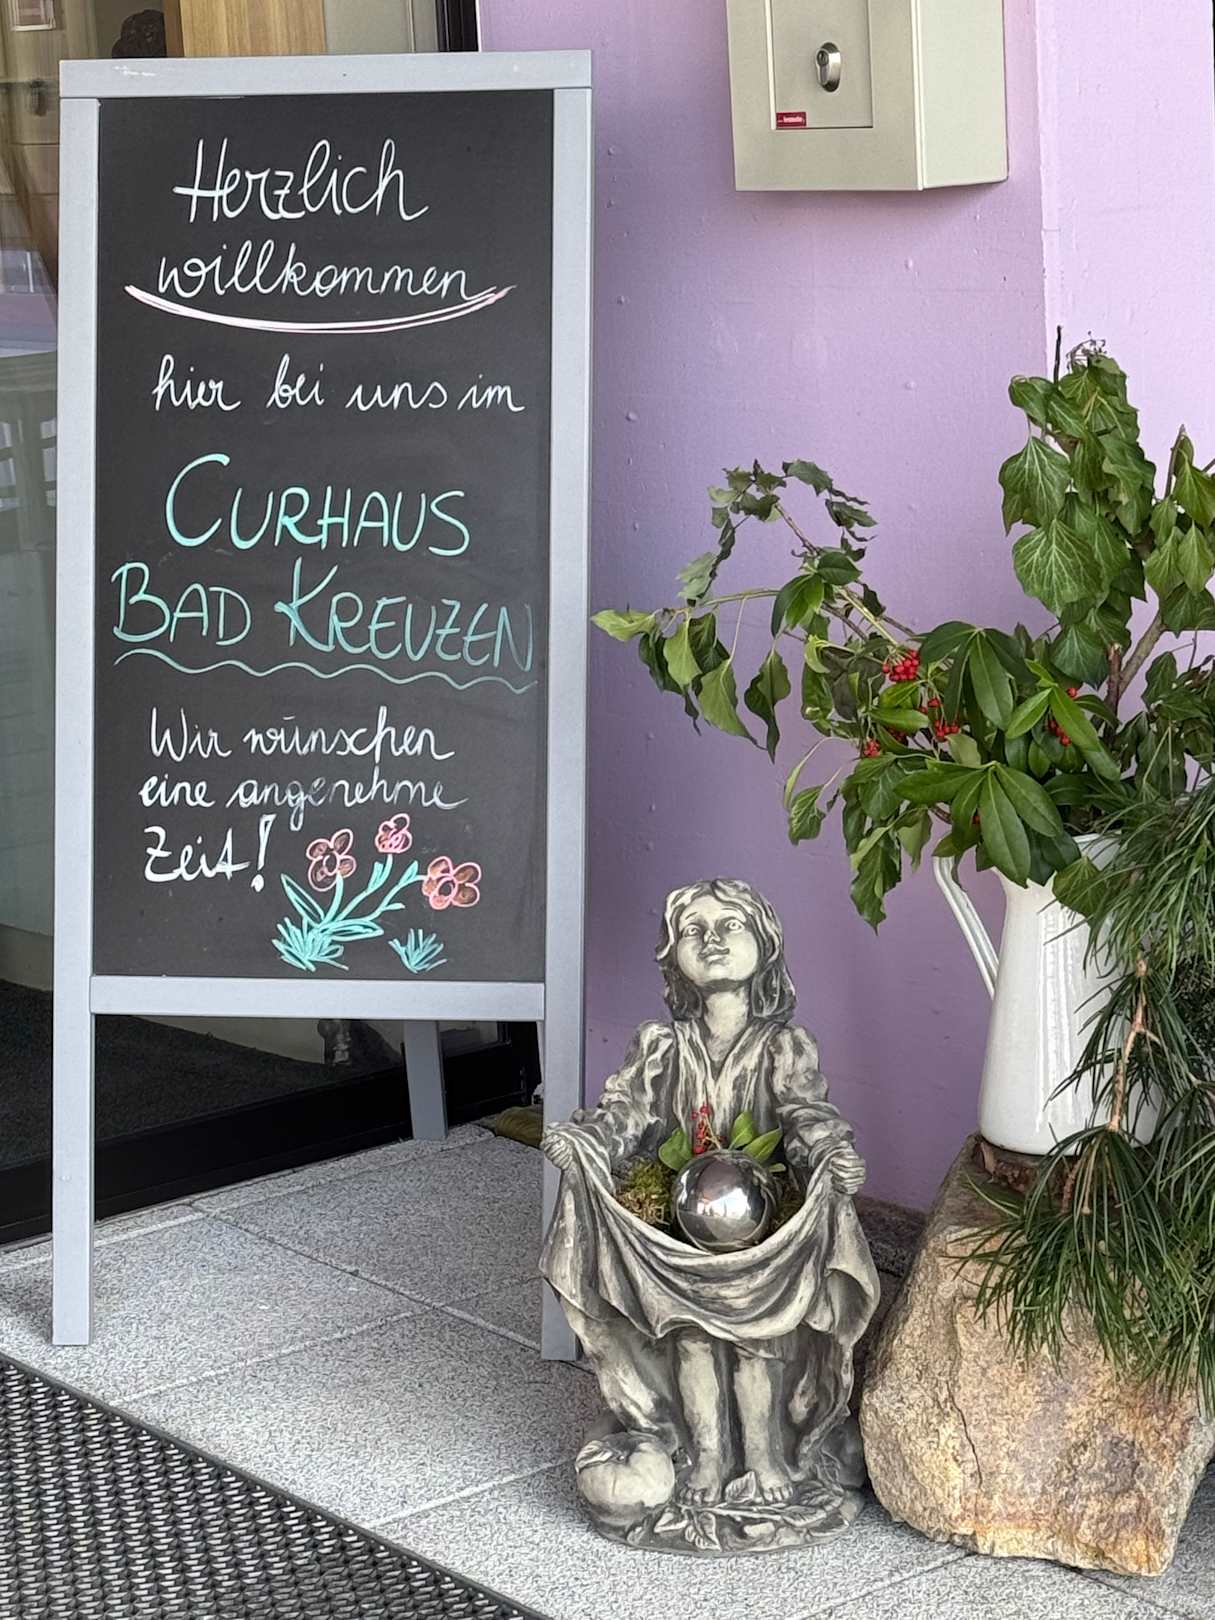 Herzlich
willkommen
hier bei uns im
CURHAUS
BAD KREUZEN
Wir wünschen
eine angenehme
Zeit!